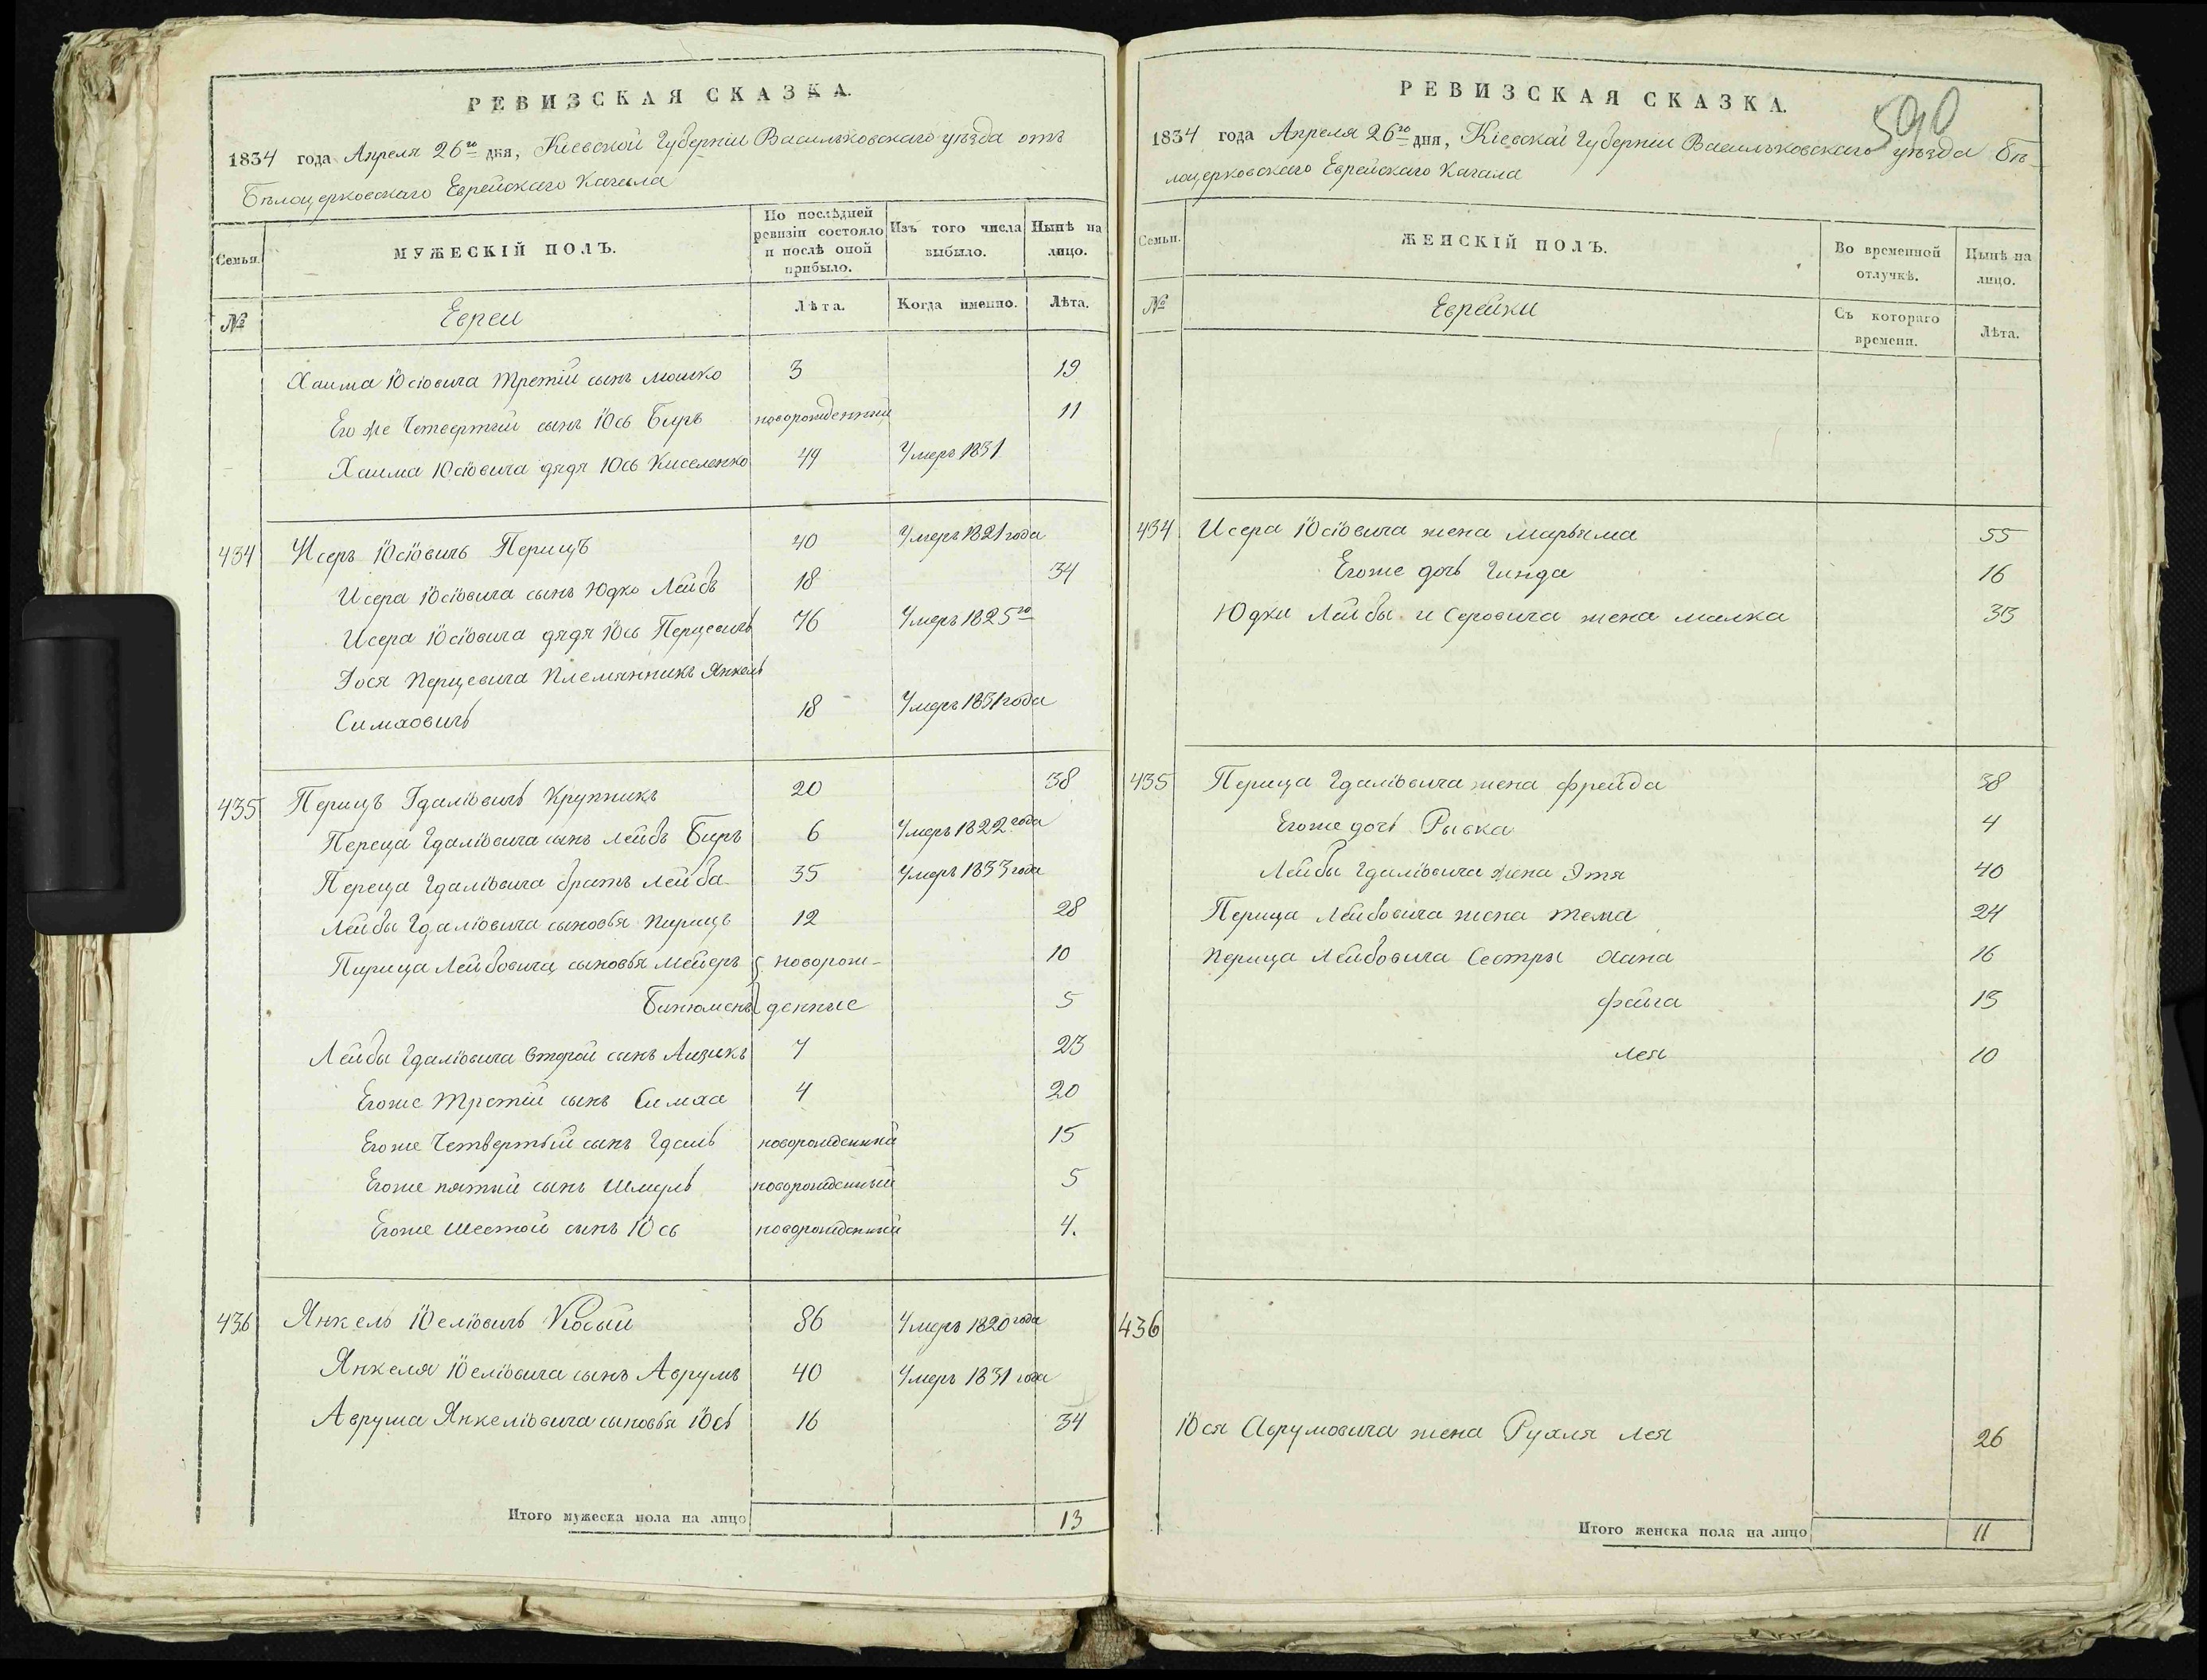 РЕВИЗСКАЯ СКАЗКА.
1834 года Апреля 26го дня, Кіевской Губерніи Васильковскаго уѣзда отъ
Бѣлоцерковскаго Еврейскаго Кагала
Семьи.
МУЖЕСКІЙ ПОЛЪ.
По послѣдней ревизіи состояло и послѣ оной прибыло.
Изъ того числа выбыло.
Нынѣ на лицо.
№
Евреи
Лѣта.
Когда именно.
Лѣта.
Хаима Іосіовича третій сынъ Мошко 3 19
Его же Четвертый сынъ Іось Биръ новорожденный 11
Хаима Юсіовича дядя Юсь Киселенко 49 Умеръ 1831
434 Исеръ Іосіовичъ Перицъ 40 Умеръ 1821 года
Исера Іосіовича сынъ Юдко Лейбъ 18 34
Исера Іосіовича дядя Іось Перцевичъ 76 Умеръ 1825го
Іося Перцевича Племянникъ Янкель
Симховичъ 18 Умеръ 1831 года
435 Перицъ Гдаліовичъ Крупникъ 20 38
Переца Гдаліовича сынъ Лейбъ Биръ 6 Умеръ 1822 года
Переца Гдаліовича братъ Лейба 35 Умеръ 1833 года
Лейбы Гдаліовича сыновья Пирицъ 12 28
Пирица Лейбовича сыновья Мейеръ новорож- 10
Бинюменъ денные 5
Лейбы Гдаліовича второй сынъ Аизикъ 7 23
Егоже Третій сынъ Симха 4 20
Егоже Четвертый сынъ Гдаль новорожденный 15
Егоже пятый сынъ Шмуль новорожденный 5
Егоже Шестой сынъ Іось новорожденный 4.
436 Янкель Іоеліовичъ Косый 86 Умеръ 1820 года
Янкеля Іоеліовича сынъ Аврумъ 40 Умеръ 1831 года
Аврума Янкеліовича сыновья Іось 16 34
Итого мужеска пола на лицо 13
590
РЕВИЗСКАЯ СКАЗКА.
1834 года Апреля 26го дня, Кіевской Губерніи Васильковскаго уѣзда Бѣ-
лоцерковскаго Еврейскаго Кагала
Семьи.
ЖЕНСКІЙ ПОЛЪ.
Во временной отлучкѣ.
Нынѣ на лицо.
№
Еврейки
Съ котораго времени.
Лѣта.
434 Исера Іосіовича жена Марьяма 55
Егоже дочь Гинда 16
Юдки Лейбы Исеровича жена Малка 33
435 Перица Гдаліовича жена Фрейда 38
Егоже дочь Рывка 4
Лейбы Гдаліовича жена Этя 40
Перица Лейбовича жена Тема 24
Перица Лейбовича Сестры Хана 16
Фейга 13
Лея 10
436
Іося Аврумовича жена Рухля Лея 26
Итого женска пола на лицо 11